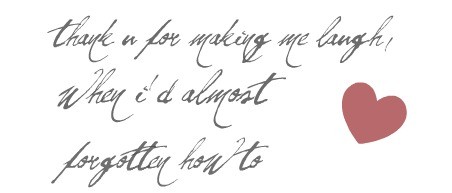 thank u for making me laugh,
When i'd almost
forgotten how to